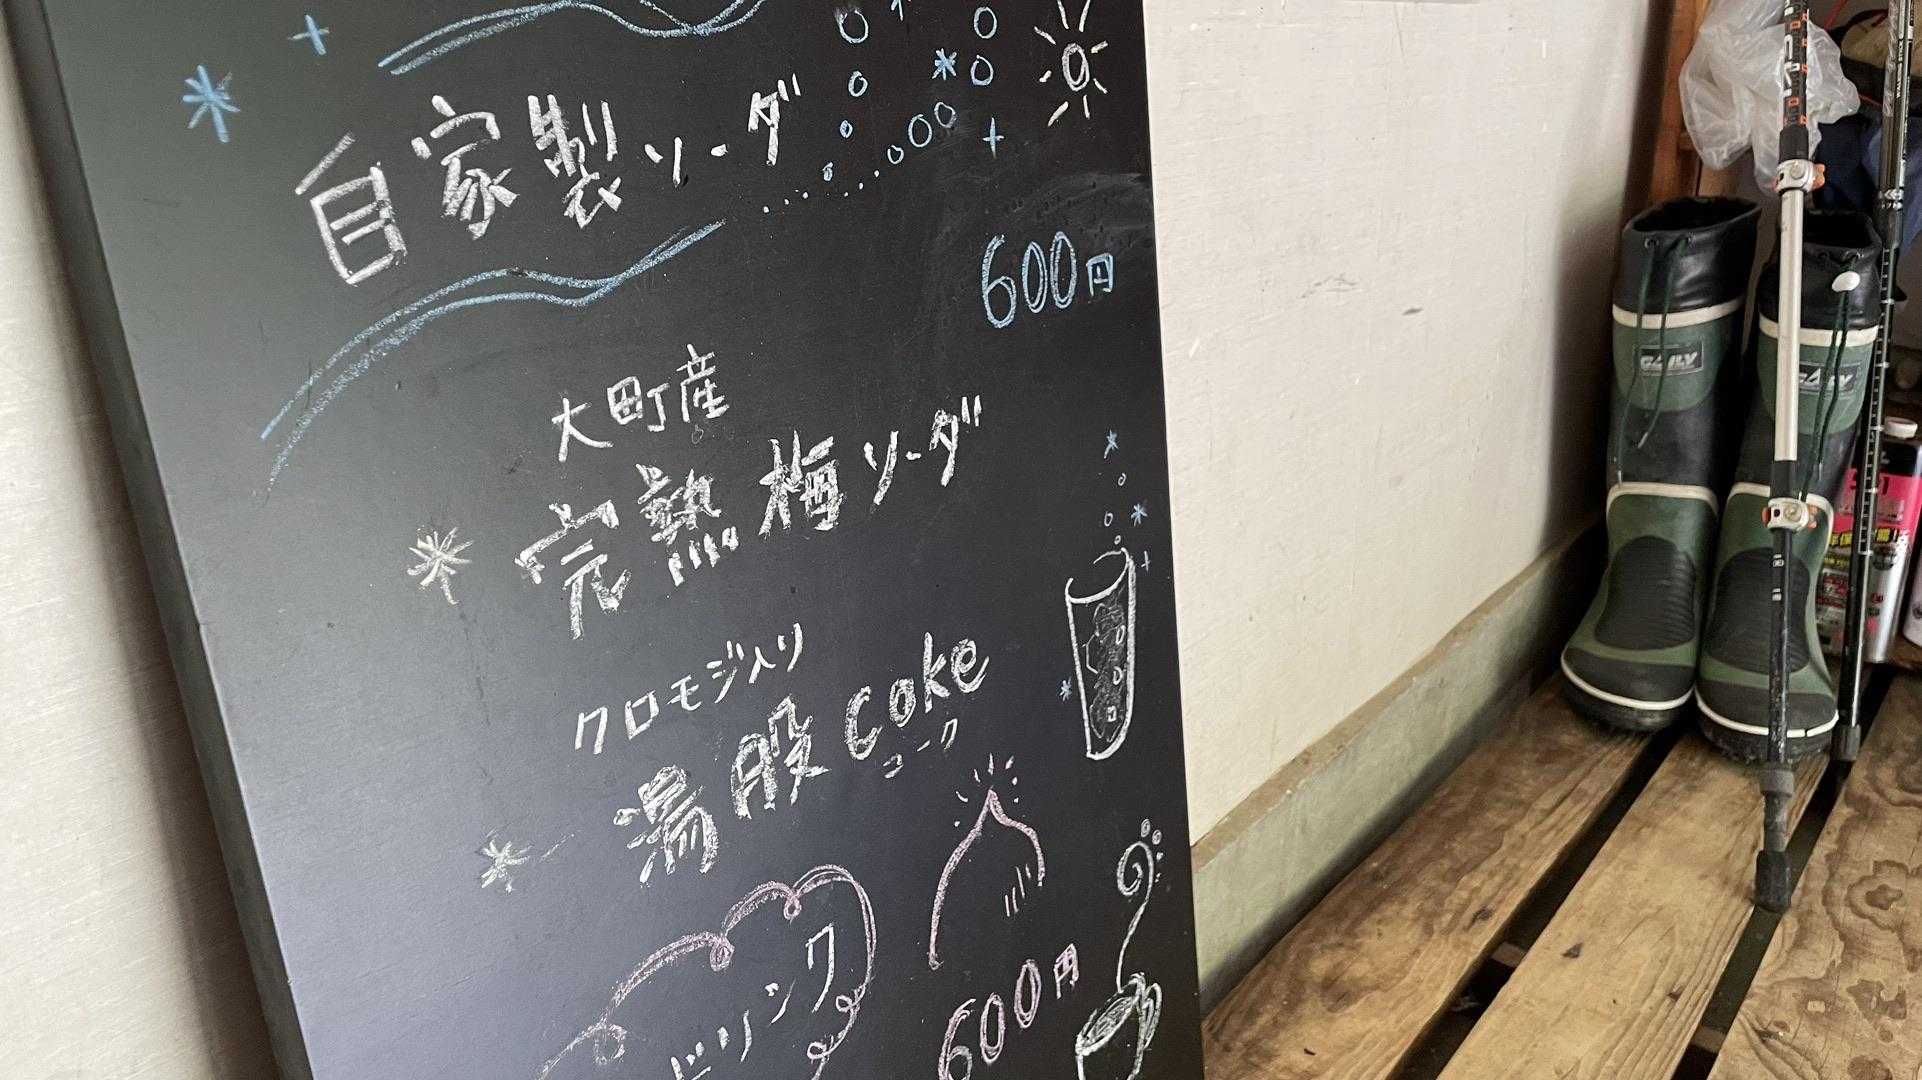 自家製ソーダ
600円
大町産
完熟梅ソーダ
クロモジ入り
湯股coke
コーク
ドリンク
600円